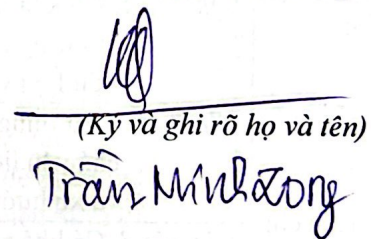 (Ký và ghi rõ họ và tên)
Trần Minh Long